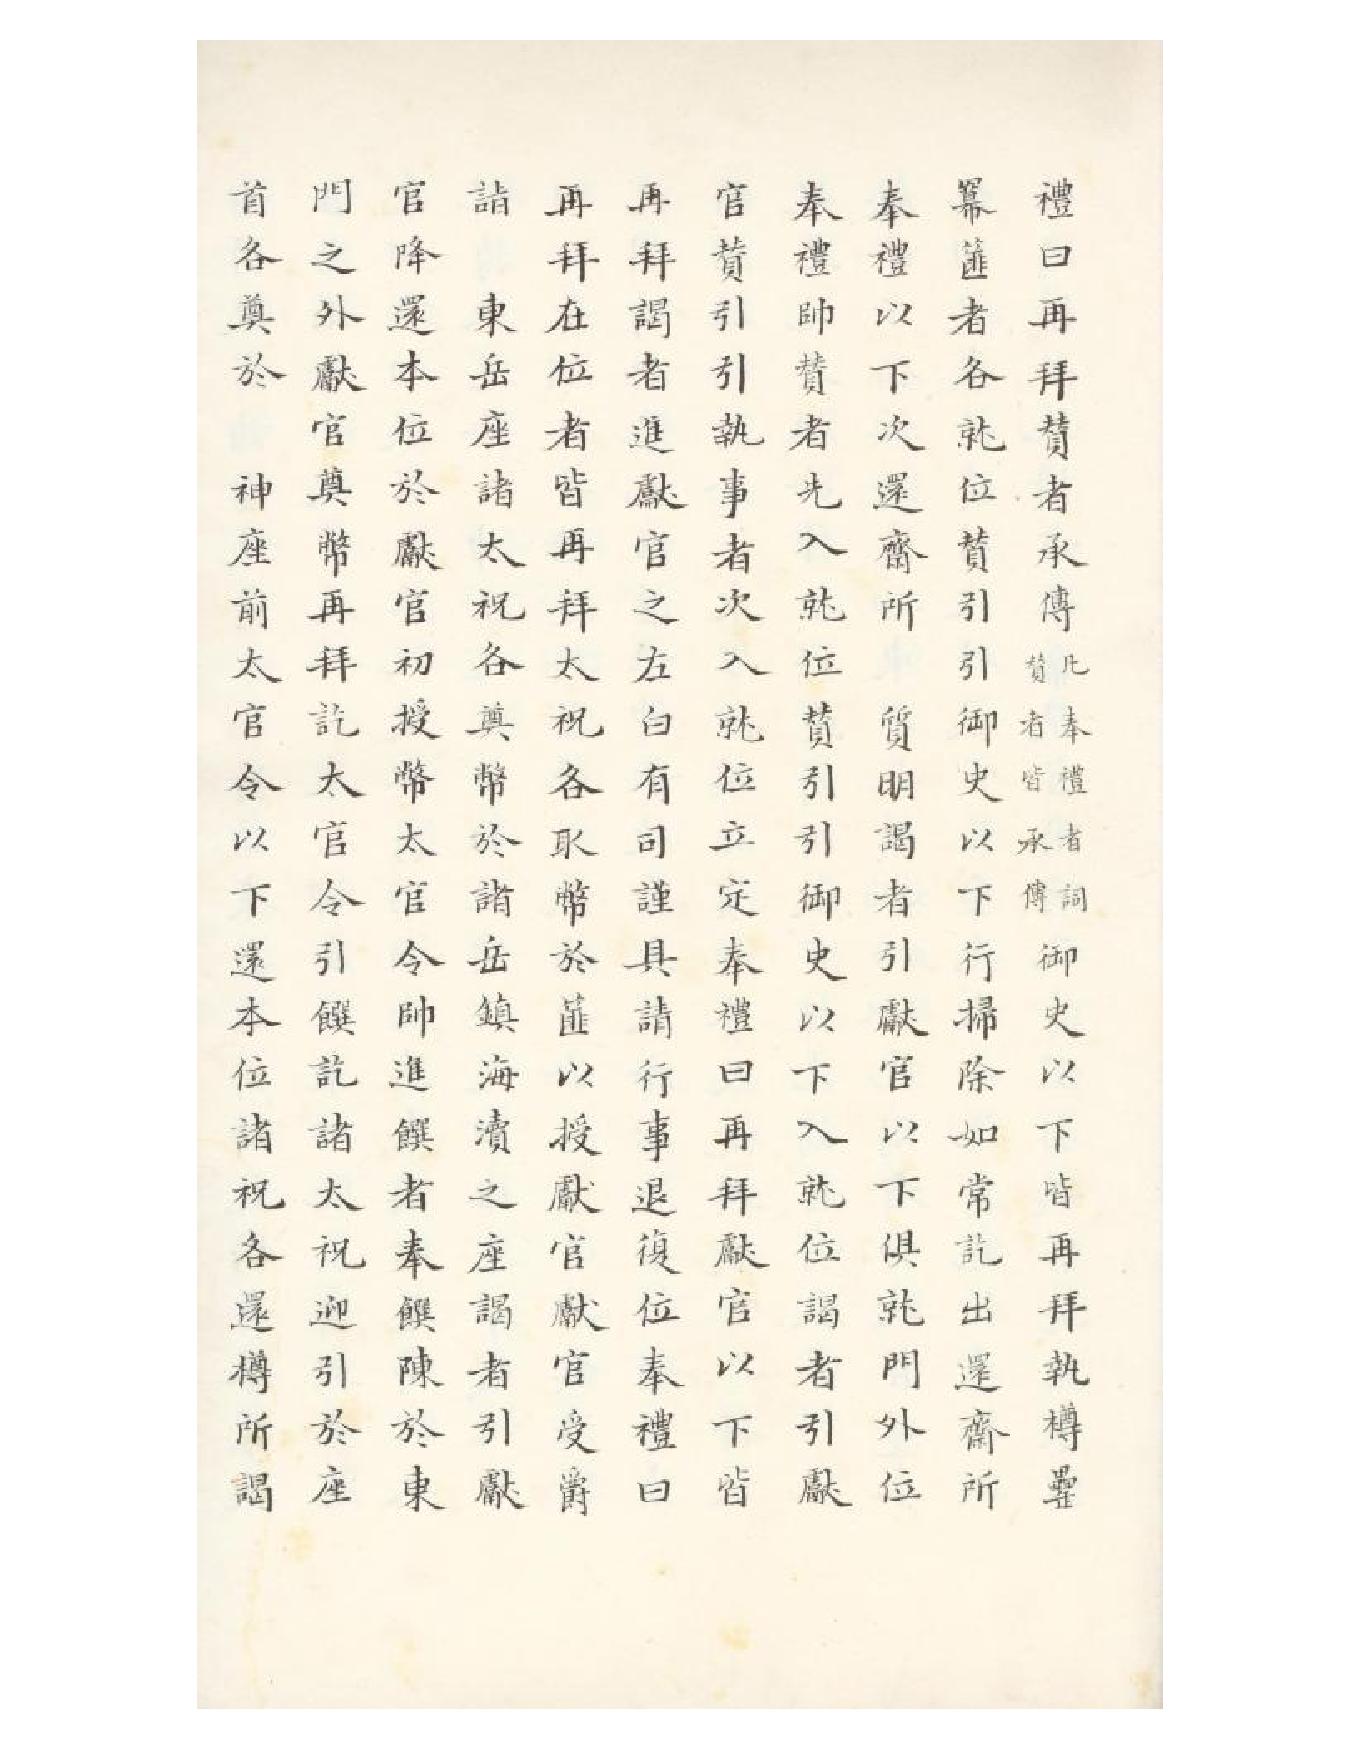 禮曰再拜贊者承傳凡奉禮者詞贊者皆承傳御史以下皆再拜執樽罍
羃篚者各就位贊引引御史以下行掃除如常訖出還齋所
奉禮以下次還齋所　質明謁者引獻官以下俱就門外位
奉禮帥贊者先入就位贊引引御史以下入就位謁者引獻
官贊引引執事者次入就位立定奉禮曰再拜獻官以下皆
再拜謁者進獻官之左白有司謹具請行事退復位奉禮曰
再拜在位者皆再拜太祝各取幣於篚以授獻官獻官受爵
詣　東岳座諸太祝各奠幣於諸岳鎮海瀆之座謁者引獻
官降還本位於獻官初授幣太官令帥進饌者奉饌陳於東
門之外獻官奠幣再拜訖太官令引饌訖諸太祝迎引於座
首各奠於　神座前太官令以下還本位諸祝各還樽所謁